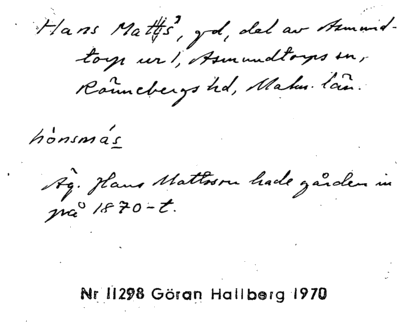 Hans Matts's, gd, del av Asmund-
torp nr 1, Asmundtorps sn,
Rönnebergs hd, Malm. län.
hònsmás
Äg. Hans Mattsson hade gården in
på 1870-t.
Nr 11298 Göran Hallberg 1970